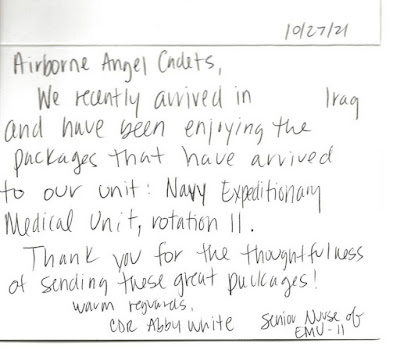 10/27/21
Airborne Angel Cadets,
We recently arrived in Iraq
and have been enjoying the
packages that have arrived
to our unit: Navy Expeditionary
Medical Unit, rotation 11.
Thank you for the thoughtfulness
of sending these great packages!
warm regards,
CDR Abby White Senior Nurse of
EMU-11